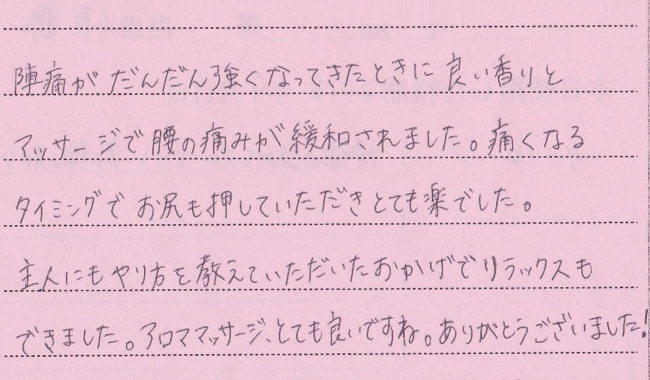 陣痛がだんだん強くなってきたときに良い香りと
マッサージで腰の痛みが緩和されました。痛くなる
タイミングでお尻も押していただきとても楽でした。
主人にもやり方を教えていただいたおかげでリラックスも
できました。アロママッサージ、とても良いですね。ありがとうございました!